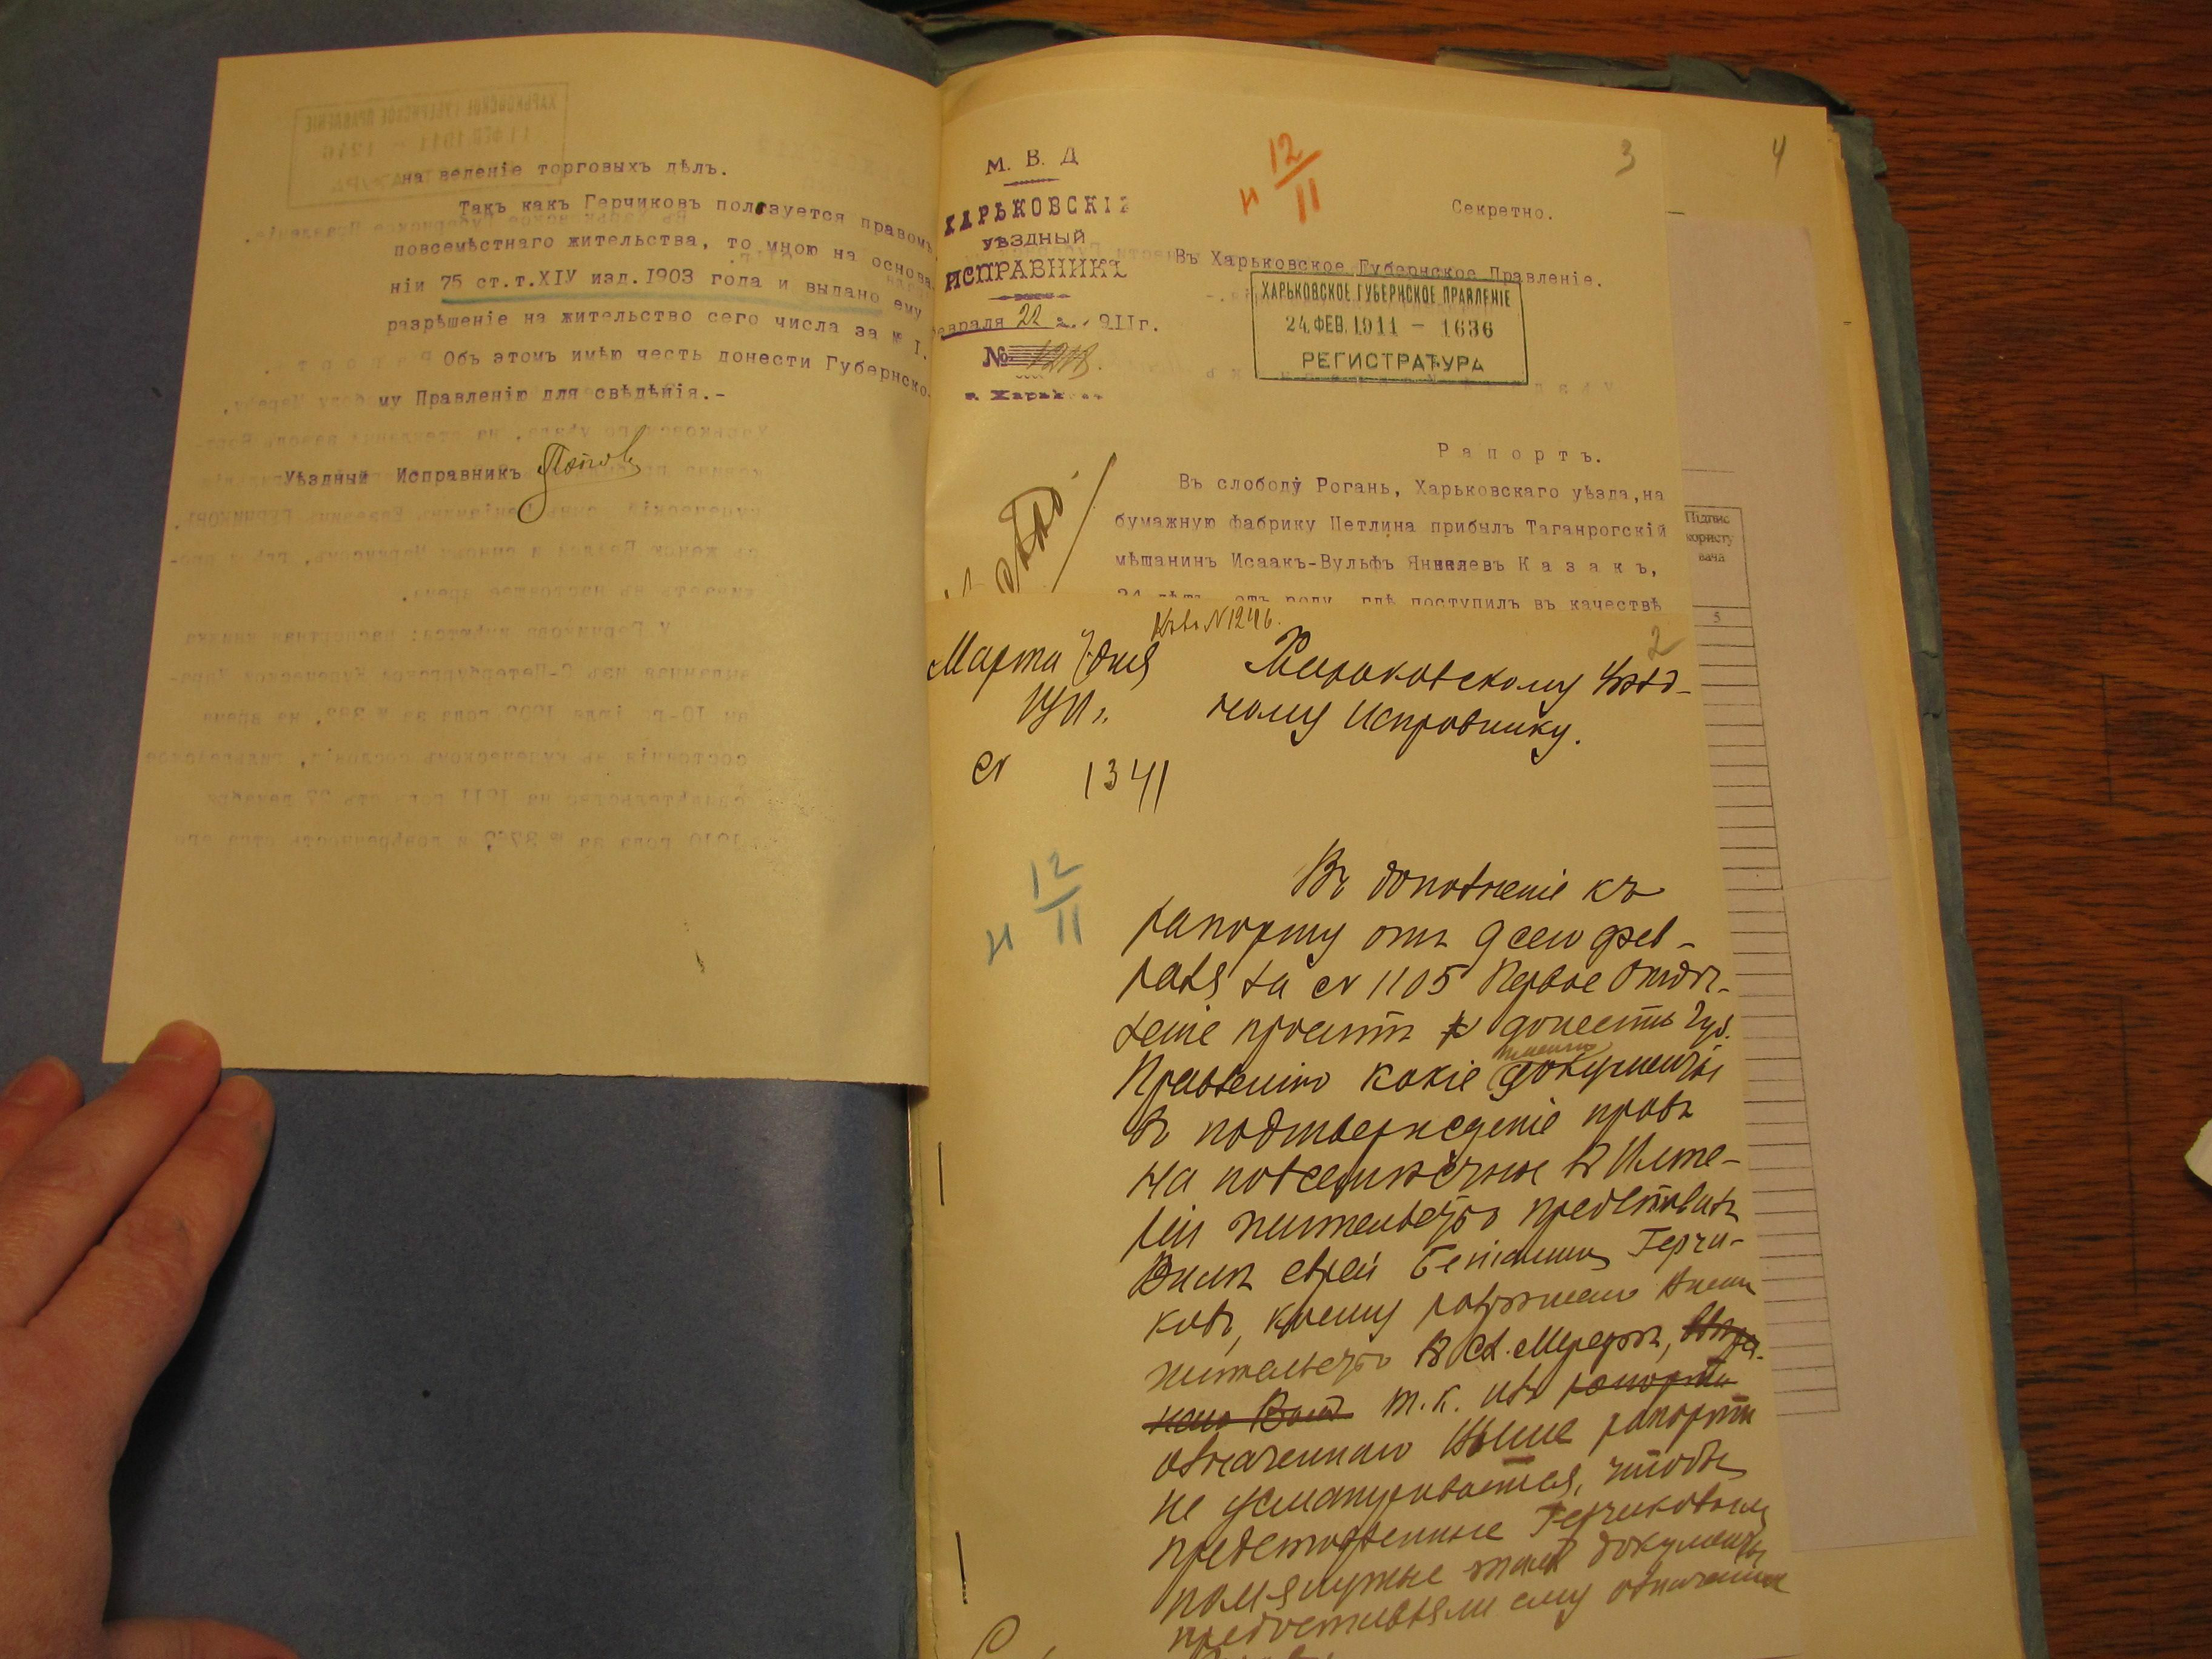 на веденіе торговыхъ дѣлъ.
Такъ какъ Герчиковъ пользуется правомъ
повсемѣстнаго жительства, то мною на основа-
ніи 75 ст.т.XIV изд.1903 года и выдано ему
разрѣшеніе на жительство сего числа за № I.
Объ этомъ имѣю честь донести Губернско-
му Правленію для свѣдѣнія.-
Уѣздный Исправникъ
М. В. Д
ХАРЬКОВСКІЙ
УѢЗДНЫЙ
ИСПРАВНИКЪ
евраля 22 1911г.
№ 1218.
г. Харьк
12
11
3
4
Секретно.
Въ Харьковское Губернское Правленіе.
ХАРЬКОВСКОЕ ГУБЕРНСКОЕ ПРАВЛЕНІЕ
24. ФЕВ. 1911 - 1636
РЕГИСТРАТУРА
Рапортъ.
Въ слободу Рогань, Харьковскаго уѣзда,на
бумажную фабрику Петлина прибылъ Таганрогскій
мѣщанинъ Исаакъ-Вульфъ Янкелевъ Казакъ,
24 лѣтъ отъ роду, гдѣ поступилъ въ качествѣ
дѣло
Къ вх №1246.
2
Марта 7 дня
1911 г.
№ 1341
Харьковскому Уѣзд-
ному Исправнику.
12
11
Въ дополненіе къ
рапорту отъ 9 сего фев-
раля за № 1105 Первое Отдѣ-
леніе проситъ донести Губ.
Правленію какіе именно документы
въ подтвержденіе правъ
на повсемѣстное въ Импе-
ріи жительство представилъ
еврей Беніаминъ Герчи-
ковъ, коему разрѣшено
жительство въ сл. Мерефѣ,
т.к. изъ рапорта
означеннаго выше рапорта
не усматривается, чтобы
представленные Герчиковымъ
документы
предоставляли ему означенное
Підпис
користу
вача
5